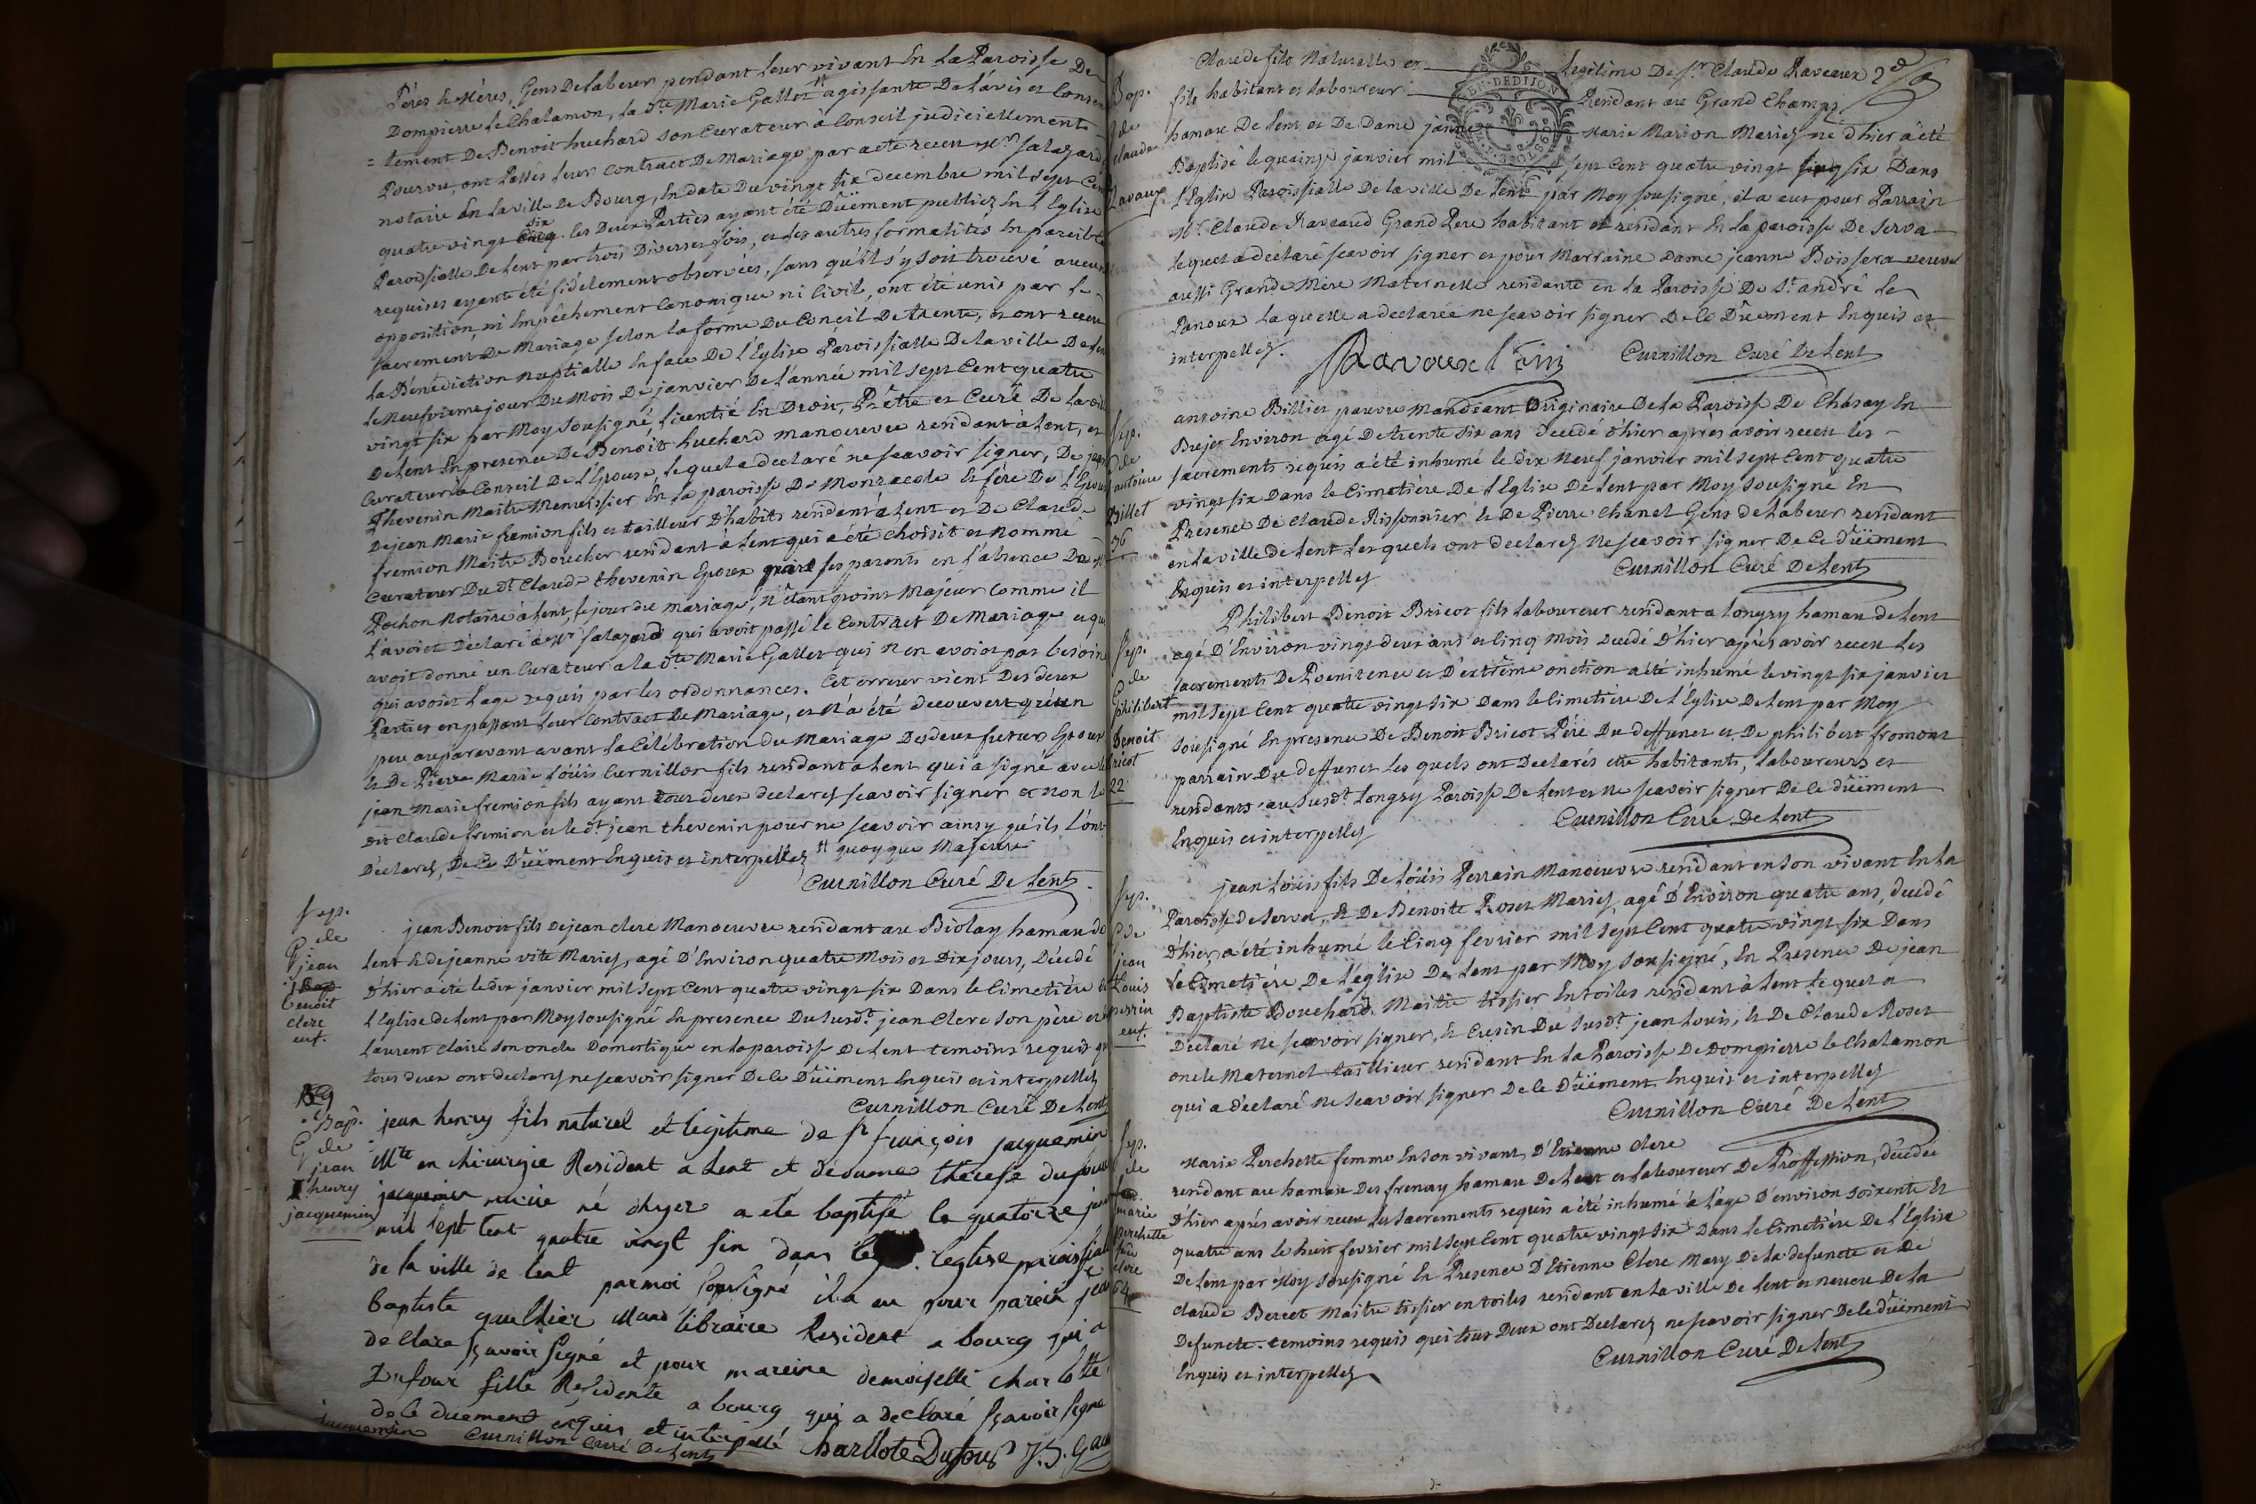 Pères & Mères, Gens De labeur pendant leur vivant En La Paroisse De
Dompierre le Chalamon, la dte Marie Gallet # agissante De l'avis et Consen
= tement De Benoit huchard son Curateur à Conseil judiciellement
Pourvu, ont Passés leur Contract De Mariage par acte receu Mr Salazard
notaire En la ville De Bourg, En date Du vingt six decembre mil sept Cent
quatre vingt Cinq. les Deux Parties ayant été Düement publiez En l'Eglise
Paroissialle De Lent par trois Diverses fois, et les autres formalités En pareil
requises ayant été fidélement observées, sans qu'il s'y soit trouvé aucune
opposition, ni Empêchement Canonique ni Civil, ont été unis par le
sacrement De Mariage selon la forme Du Concil De trente, et ont receu
la Bénédiction nuptialle En face De l'Eglise Paroissialle De la ville De Lent
le Neufvieme jour Du Mois De janvier De l'année mil sept Cent quatre
vingt six par Moy sousigné, licentié En Droit, Prêtre et Curé De la ville
De Lent En presence De Benoit huchard manoeuvre residant à Lent, et
Curateur à Conseil De l'Epouse, lequel a declaré ne scavoir signer, De jean
Thevenin Maitre Menuissier En la paroisse De Monracole & fére De l'Epoux
De jean Marie fremion fils et tailleur D'habits residant à Lent et De Claude
fremion Maitre Boucher residant à Lent qui a été choisit et nommé
Curateur Du dt Claude thevenin Epoux parmi ses parents en l'absence De
Pochon Notaire à Lent, le jour du mariage, N'étant point Majeur comme il
l'avoit Déclaré à Mr Salazard qui avoit passé le Contract De Mariage et qui
avoit donné un Curateur a la dte Marie Gallet qui N'en avoit pas besoin
qui avoit l'age requis par les ordonnances. Cet erreur vient Des deux
Parties en passant leur Contract De Mariage, et N'a été decouvert qu'un
peu auparavant avant la Célébration du Mariage Des deux futurs Epoux
& De Pierre Marie Loüis Curnillon fils residant à Lent qui a signé avec le
jean Marie fremion fils ayant tout deux declarez scavoir signer et non le
dit Claude fremion et le dt jean thevenin pour ne scavoir ainsy qu'ils l'ont
Declarez, De Ce Düement Enquis et interpellez # quoy que Majeure
Curnillon Curé De Lent
Sep.
de
jean
Benoit
clere
enf.
jean Benoit fils De jean clere Manoeuvre residant au Biolay hamau de
Lent & de jeanne vite Mariez, agé D'Environ quatre Mois et Dix jours, Décédé
D'hier a été le dix janvier mil sept Cent quatre vingt six Dans le Cimetière
l'Eglise de Lent par Moy sousigné En presence Du susdt jean Clere son père et
Laurent claire son oncle Domestique en la paroisse De Lent temoins requis qui
tous deux ont declarez ne scavoir signer De Ce Düement Enquis et interpellez
Curnillon Curé De Lent
Bap.
de
jean
henry
jacquemin
jean henry fils naturel et legitime de sr françois jacquemin
Mte en chirurgie Resident a Lent et de dame therese dufour
jacquemin mariée né d'hyer a eté baptisé le quatorze
mil sept cent quatre vingt six dans l'eglise paroissialle
de la ville de Lent par moi soussigné il a eu pour parein jean
baptiste gualtier Mand libraire Resident a bourg qui a
declare sçavoir signé et pour mareine demoiselle charlotte
Dufour fille Residente a bourg qui a declaré sçavoir signe
de ce duement enquis et interpellé
jacquemin Curnillon Curé De Lent harllote Dufour J. B.
Bap.
de
claude
Ravaux
Claude fils Naturelle et legitime De Sr Claude Raveaux 2e
fils habitant et laboureur Residant au Grand Champ
hamau De Lent et De Dame janne Marie Marion Mariez né d'hier a été
Baptisé le quinze janvier mil sept Cent quatre vingt six Dans
l'Eglise Paroissialle De la ville De Lent par Moy sousigné, il a eut pour Parrain
Sr Claude Raveaud Grand Pere habitant et residant En la paroisse De Serva
lequel a declaré scavoir signer et pour Marraine Dame jeanne Boissera veuve
aussi Grande Mère Maternelle residante en la Paroisse De St andré le
Panoux la quelle a declarée ne scavoir signer De Ce Düement Enquis et
interpellez. Ravoux l'ainé Curnillon Curé De Lent
Sep.
de
antoine
Billet
36
antoine Billiet pauvre Mandiant Originaire De la Paroisse De Chasay En
Bujet Environ agé De trente six ans decedé d'hier après avoir receu les
sacrements requis a été inhumé le dix Neuf janvier mil sept Cent quatre
vingt six Dans le Cimetière De l'Eglise De Lent par Moy sousigné En
Présence De Claude Rissonnier & De Pierre Chanel Gens de labeur residant
en la ville de Lent lesquels ont declarez Ne scavoir signer De Ce Düement
Enquis et interpellez Curnillon Curé De Lent
Sep.
de
philibert
Benoit
Bricot
22
Philibert Benoit Bricot fils laboureur residant a longry hamau de Lent
agé D'Environ vingt deux ans et Cinq Mois decedé D'hier après avoir receu les
sacrements De Poenitence et D'extrême onction a été inhumé le vingt six janvier
mil sept Cent quatre vingt six Dans le Cimetière De l'Eglise De Lent par Moy
sousigné En presence De Benoit Bricot Pére Du deffunct et De philibert fromont
parrain Du deffunct lesquels ont Declarés etre habitants, laboureurs et
residants au susdt Longry Paroisse De Lent et Ne scavoir signer De Ce düement
Enquis et interpellez Curnillon Curé De Lent
Sep.
de
jean
Louis
perrin
enf.
jean Loüis fils De Loüis Perrain Manoeuvre residant en son vivant En la
Paroisse de Serva, & De Benoite Roset Mariez, agé D'Environ quatre ans, decedé
D'hier, a été inhumé le Cinq fevrier mil sept Cent quatre vingt six Dans
le Cimetière De l'église De Lent par Moy sousigné, En Presence De jean
Baptiste Bouchard Maitre tissier En toiles residant à Lent lequel a
Declaré Ne scavoir signer, & Cusin Du susdt jean Louis, & De Claude Roset
oncle Maternel taillieur residant En la Paroisse De Dompierre le Chalamon
qui a déclaré Ne scavoir signer De Ce Düement Enquis et interpellez
Curnillon Curé De Lent
Sep.
de
marie
Perchette
fe
clere
64
Marie Perchette femme En son vivant D'Etienne clere
residant au hamau Des frenay hamau De Lent et laboureur De Proffession, décedée
D'hier après avoir receu les Sacrements requis a été inhumé à l'age D'environ soixente et
quatre ans le huit fevrier mil sept Cent quatre vingt six Dans le Cimetière De l'Eglise
De Lent par Moy sousigné En Presence D'Etienne Clere Mary De la defuncte et De
claude Bercet Maitre tissier en toiles residant en la ville De Lent et neveu De la
Defuncte. temoins requis qui tous Deux ont Declarez ne scavoir signer De Ce düement
Enquis et interpellez Curnillon Curé De Lent